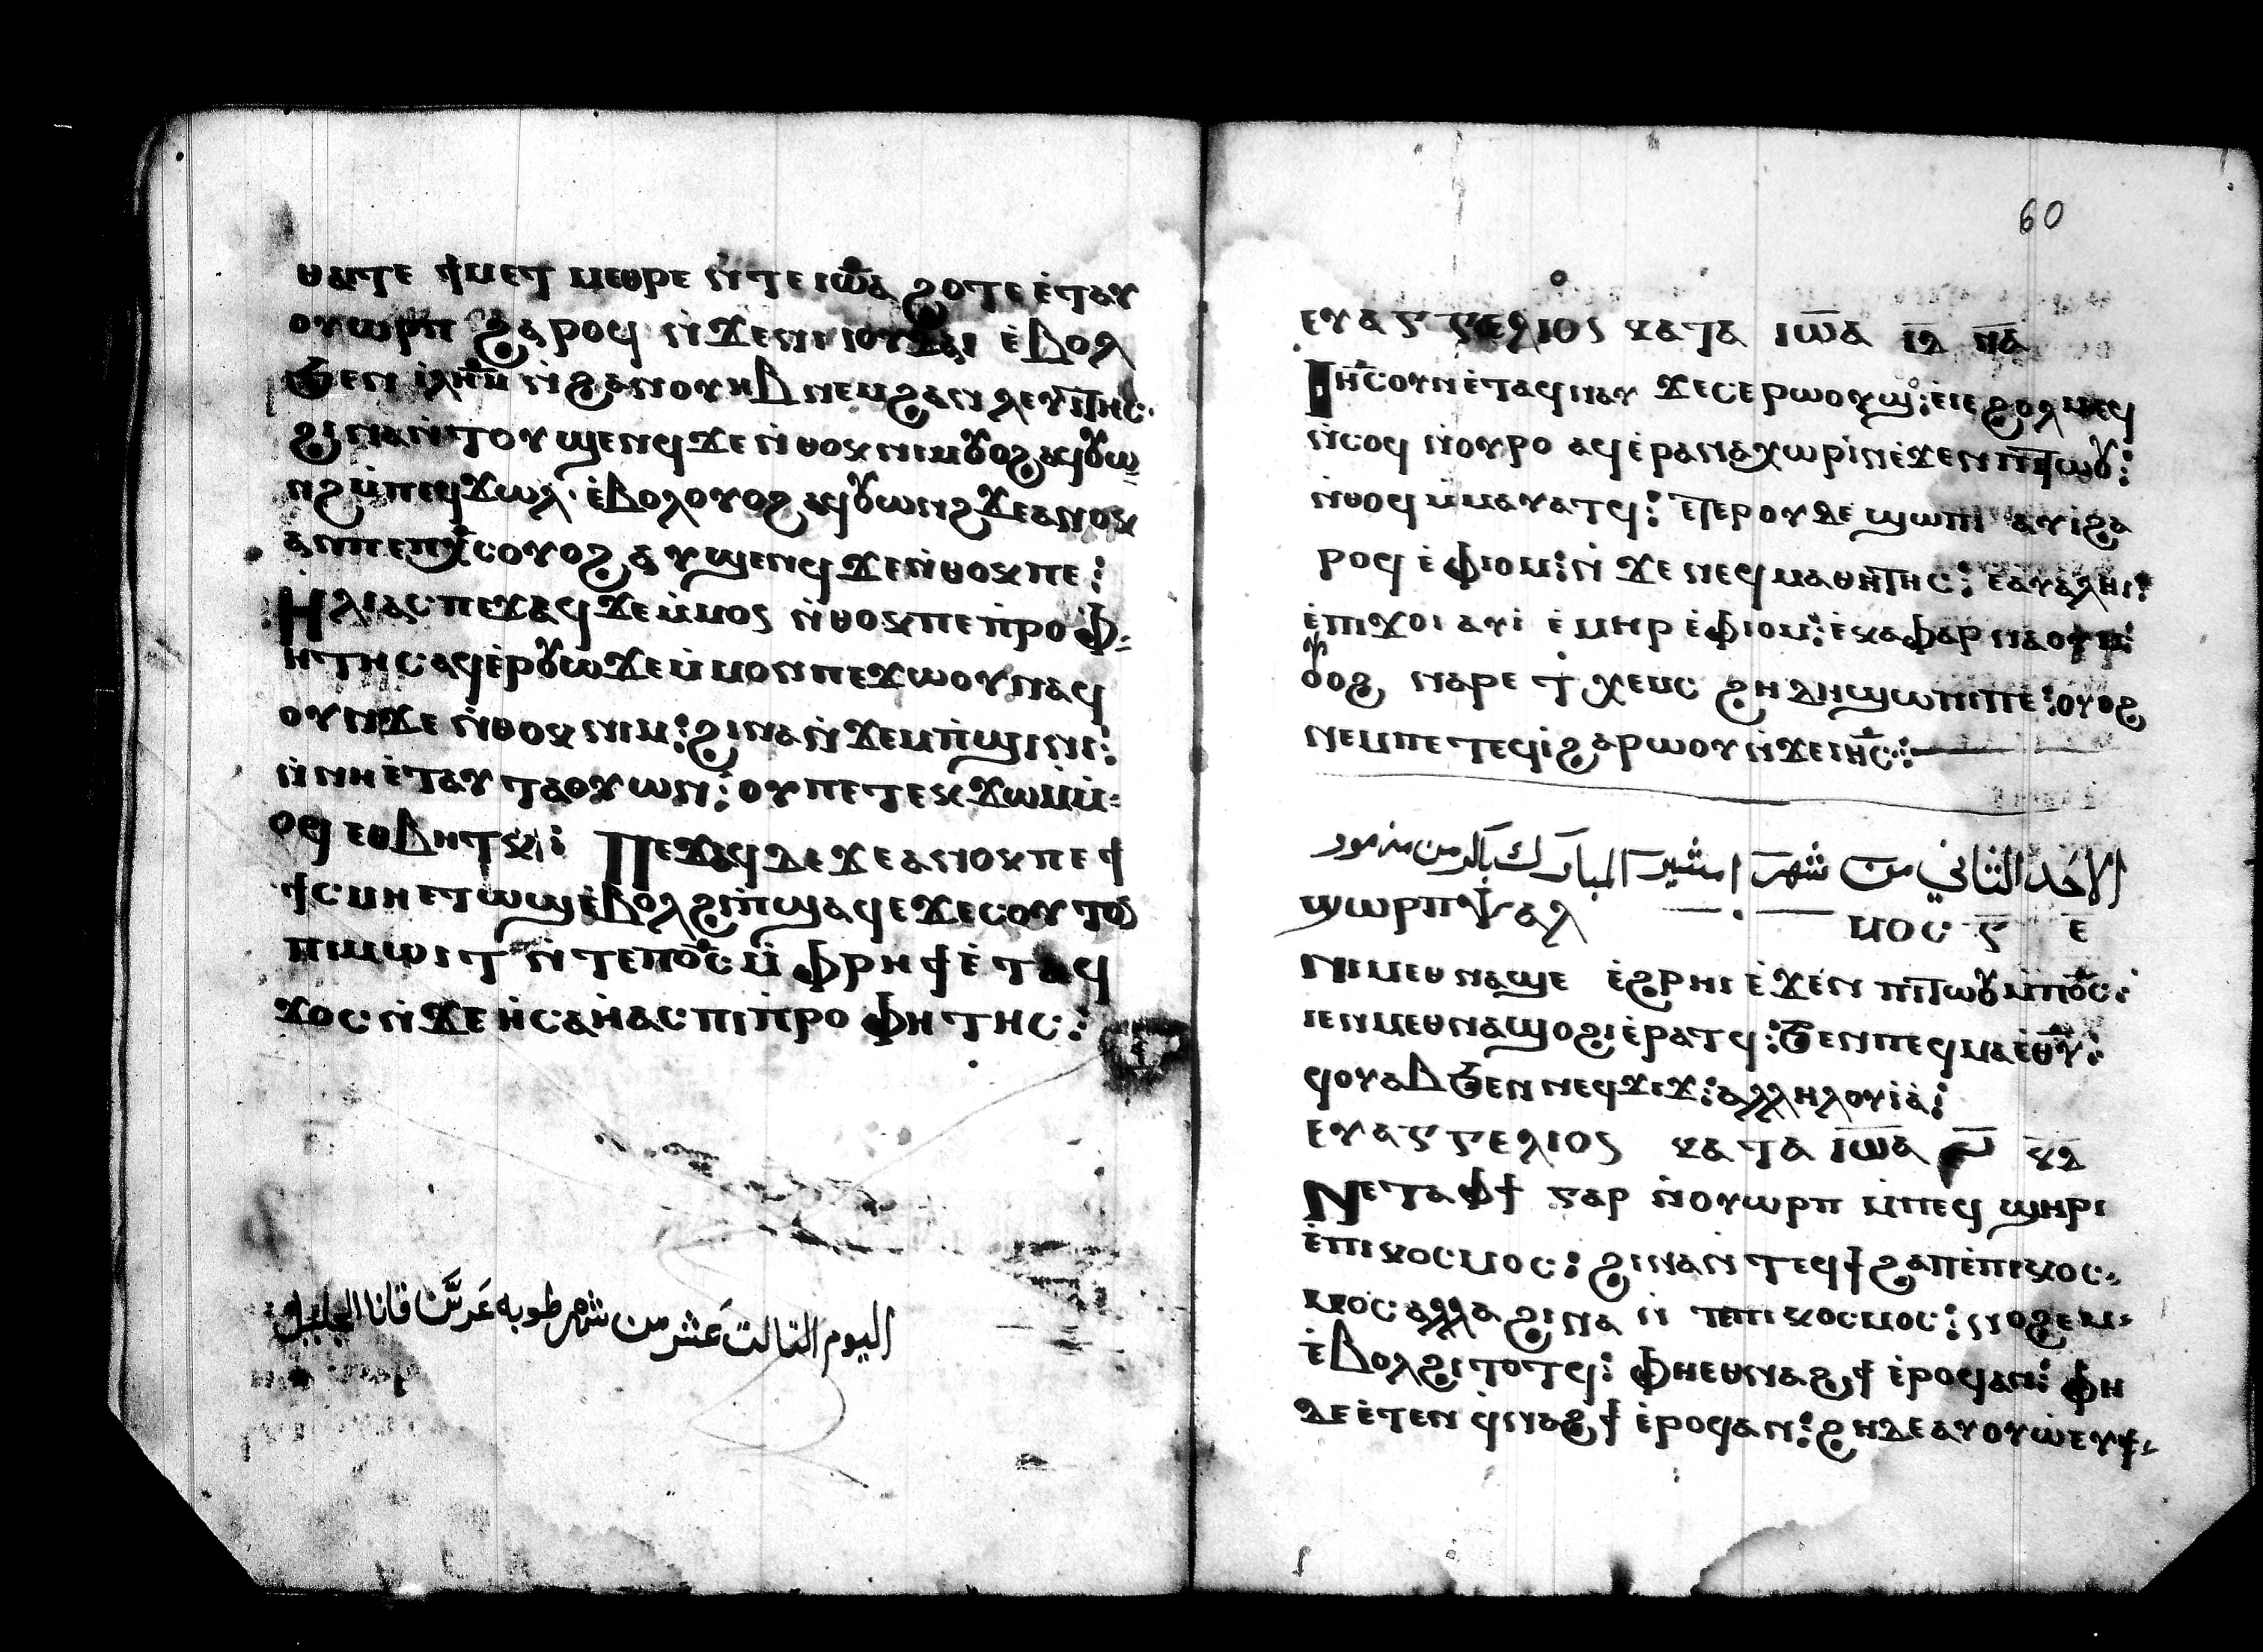 ⲑⲁⲓⲧⲉ ϯⲙⲉⲧ ⲙⲉⲑⲣⲉ ⲛ̀ⲧⲉ ⲓⲱ̅ⲁ ϩⲟⲧⲉ ⲉ̀ⲧⲁⲩ
ⲟⲩⲱⲣⲡ ϩⲁⲣⲟϥ ⲛ̀ϫⲉⲛⲓⲓⲟⲩⲇⲁⲓ ⲉ̀ⲃⲟⲗ
ϧⲉⲛ ⲓⲗ̅ⲏ̅ⲙ ⲛ̀ϩⲁⲛⲟⲩⲏⲃ ⲛⲉⲙϩⲁⲛⲗⲉⲩⲓⲧⲏⲥ·
ϩⲓⲛⲁⲛ̀ⲧⲟⲩϣⲉⲛϥ ϫⲉ ⲛ̀ⲑⲟⲕ ⲛⲓⲙ ⲟⲩⲟϩ ⲁϥⲟⲩⲱ
ⲛϩ ⲙ̀ⲡⲉϥϫⲱⲗ· ⲉ̀ⲃⲟⲗ ⲟⲩⲟϩ ⲁϥⲟⲩⲱⲛϩ ϫⲉ ⲁⲛⲟⲕ
ⲁⲛⲡⲉⲡⲭ̅ⲥ ⲟⲩⲟϩ ⲁⲩϣⲉⲛϥ ϫⲉ ⲛ̀ⲑⲟⲕ ⲡⲉ:
Ⲏⲗⲓⲁⲥ ⲡⲉϫⲁϥ ϫⲉ ⲙ̀ⲙⲟⲥ ⲛ̀ⲑⲟⲕ ⲡⲉ ⲡ̀ⲣⲟⲫ-
ⲏⲧⲏⲥ ⲁϥⲉ̀ⲣⲟⲩⲱ ϫⲉ ⲙ̀ⲙⲟⲛ ⲡⲉϫⲱⲟⲩ ⲛⲁϥ
ⲟⲩⲛ ϫⲉ ⲛ̀ⲑⲟⲕ ⲛⲓⲙ: ϩⲓⲛⲁ ⲛ̀ϫⲉⲙⲡ̀ϣⲓⲛⲓ:
ⲛ̀ⲛⲏ ⲉ̀ⲧⲁⲩⲧⲁⲟⲩⲱⲛ: ⲟⲩ ⲡⲉⲧⲉⲕϫⲱ ⲙ̀ⲙ̀-
ⲟϥ ⲉⲑⲃⲏⲧⲕ: Ⲡⲉϫⲁϥ ⲇⲉ ϫⲉ ⲁⲛⲟⲕ ⲡⲉ ϯ
ϯⲥⲙⲏ ⲉⲧⲱϣ ⲉ̀ⲃⲟⲗ ϩⲓⲡ̀ϣⲁϥⲉ ϫⲉ ⲥⲟⲩⲧⲱ
ⲡⲓⲙⲱⲓⲧ ⲛ̀ⲧⲉⲡⲟ̅ⲥ ⲙ̀ⲫⲣⲏϯ ⲉ̀ⲧⲁϥ
ϫⲟⲥ ⲛ̀ϫⲉ ⲏ̀ⲥⲁⲏ̀ⲁⲥ ⲡⲓⲡ̀ⲣⲟⲫⲏⲧⲏⲥ:
اليوم التالت عشر من شهر طوبه عرس قانا الجليل
60
ⲉⲩⲁⲅⲅⲉⲗⲓⲟⲥ ⲕⲁⲧⲁ ⲓⲱ̅ⲁ ⲓ̅ⲇ̅ ⲛ̅ⲁ̅
Ⲓⲏ̅ⲥ ⲟⲩⲛ ⲉ̀ⲧⲁϥⲛⲁⲩ ϫⲉ ⲥⲉⲣⲱⲟⲩϣ: ⲉ̀ⲓⲉϩⲟⲗⲙⲉϥ
ⲛ̀ⲥⲟϥ ⲛ̀ⲟⲩⲣⲟ ⲁϥⲉ̀ⲣⲁⲛⲁⲭⲱⲣⲓⲛ ⲉ̀ϫⲉⲛ ⲡⲓⲧⲱⲟⲩ:
ⲛ̀ⲑⲟϥ ⲙ̀ⲙⲁⲩⲁⲧϥ: ⲉⲧⲉⲣⲟⲩϩⲉ ϣⲱⲡⲓ ⲁⲩⲓ̀ϩⲁ
ⲣⲟϥ ⲉ̀ⲫⲓⲟⲙ: ⲛ̀ϫⲉ ⲛⲉϥⲙⲁⲑⲏⲧⲏⲥ: ⲉⲁⲩⲁⲗⲏⲓ:
ⲉ̀ⲡⲓϫⲟⲓ ⲁⲩⲓ̀ ⲉ̀ⲙⲏⲣ ⲉ̀ⲫⲓⲟⲙ: ⲉ̀ⲕⲁⲫⲁⲣⲛⲁⲟⲩⲙ:
ⲟⲩⲟϩ ⲛⲁⲣⲉ ϯⲭⲉⲙⲥ ϩⲏⲇⲏ ϣⲱⲡⲓ ⲡⲉ: ⲟⲩⲟϩ
ⲛⲉⲙⲡⲉⲧⲉϥⲓ̀ ϩⲁⲣⲱⲟⲩ ⲛ̀ϫⲉ ⲓⲏ̅ⲥ:
الاحد الثاني من شهر امشير المبارك باكر من مزمور
ϣⲱⲣⲡ ⲯⲁⲗ ⲙⲟⲥ ⲅ̅ ⲉ̅
Ⲛⲓⲙ ⲉⲑⲛⲁϣⲉ ⲉ̀ϩⲣⲏⲓ ⲉ̀ϫⲉⲛ ⲡⲓⲧⲱⲟⲩ ⲙ̀ⲡⲟ̅ⲥ:
ⲓⲉ ⲛⲓⲙ ⲉⲑⲛⲁϣⲟϩⲓ ⲉ̀ⲣⲁⲧϥ: ϧⲉⲛ ⲡⲉϥⲙⲁ ⲉ̀ⲑ̅ⲩ:
ϥⲟⲩⲁⲃ ϧⲉⲛ ⲛⲉϥϫⲓϫ: ⲁⲗⲗⲏⲗⲟⲩⲓⲁ̀:
ⲉⲩⲁⲅⲅⲉⲗⲓⲟⲥ ⲕⲁⲧⲁ ⲓⲱ̅ⲁ ⲕ̅ⲇ̅
Ⲛⲉⲧⲁⲫϯ ⲅⲁⲣ ⲛ̀ⲟⲩⲱⲣⲡ ⲙ̀ⲡⲉϥϣⲏⲣⲓ
ⲉ̀ⲡⲓⲕⲟⲥⲙⲟⲥ: ϩⲓⲛⲁ ⲛ̀ⲧⲉϥϯϩⲁⲡ ⲉ̀ⲡⲓⲕⲟⲥ-
ⲙⲟⲥ ⲁⲗⲗⲁ ϩⲓⲛⲁ ⲛ̀ⲧⲉⲡⲓⲕⲟⲥⲙⲟⲥ: ⲛⲟϩⲉⲙ-
ⲉ̀ⲃⲟⲗ ϩⲓⲧⲟⲧϥ: ⲫⲏ ⲉⲑⲛⲁϩϯ ⲉ̀ⲣⲟϥ ⲁⲛ: ⲫⲏ
ⲇⲉ ⲉ̀ⲧⲉⲛϥ̀ⲛⲁϩϯ ⲉ̀ⲣⲟϥ ⲁⲛ: ϩⲏⲇⲉ ⲁⲩⲟⲩⲱ̀ ⲉⲩϯ-